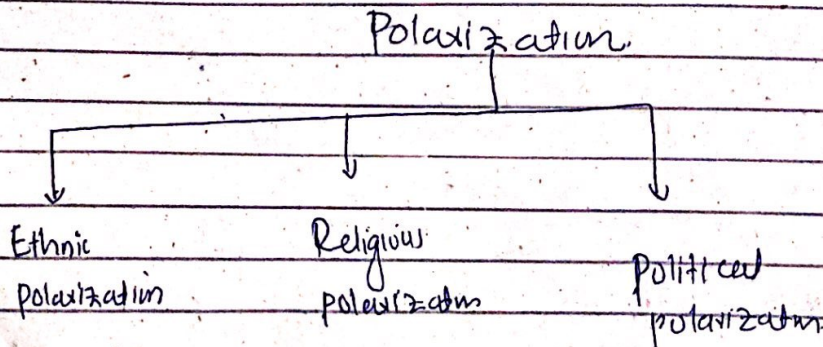 Polarization.
Ethnic
polarization
Religious
polarization
Political
polarization